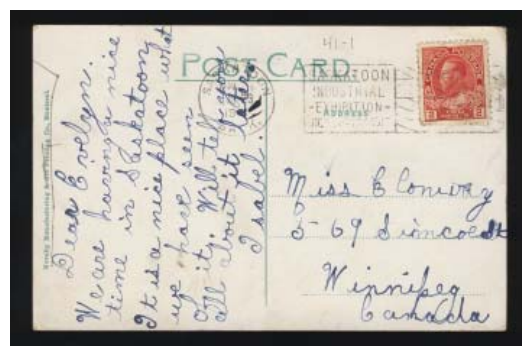 41-1
POST CARD
SASKATOON
INDUSTRIAL
-EXHIBITION-
Address
Dear Evelyn.
We are having a nice
time in Saskatoon
It is a nice place what
we have seen
of it. Will tell you
all about it later.
Isabel.
Miss E Conway
569 Simcoe St
Winnipeg
Canada